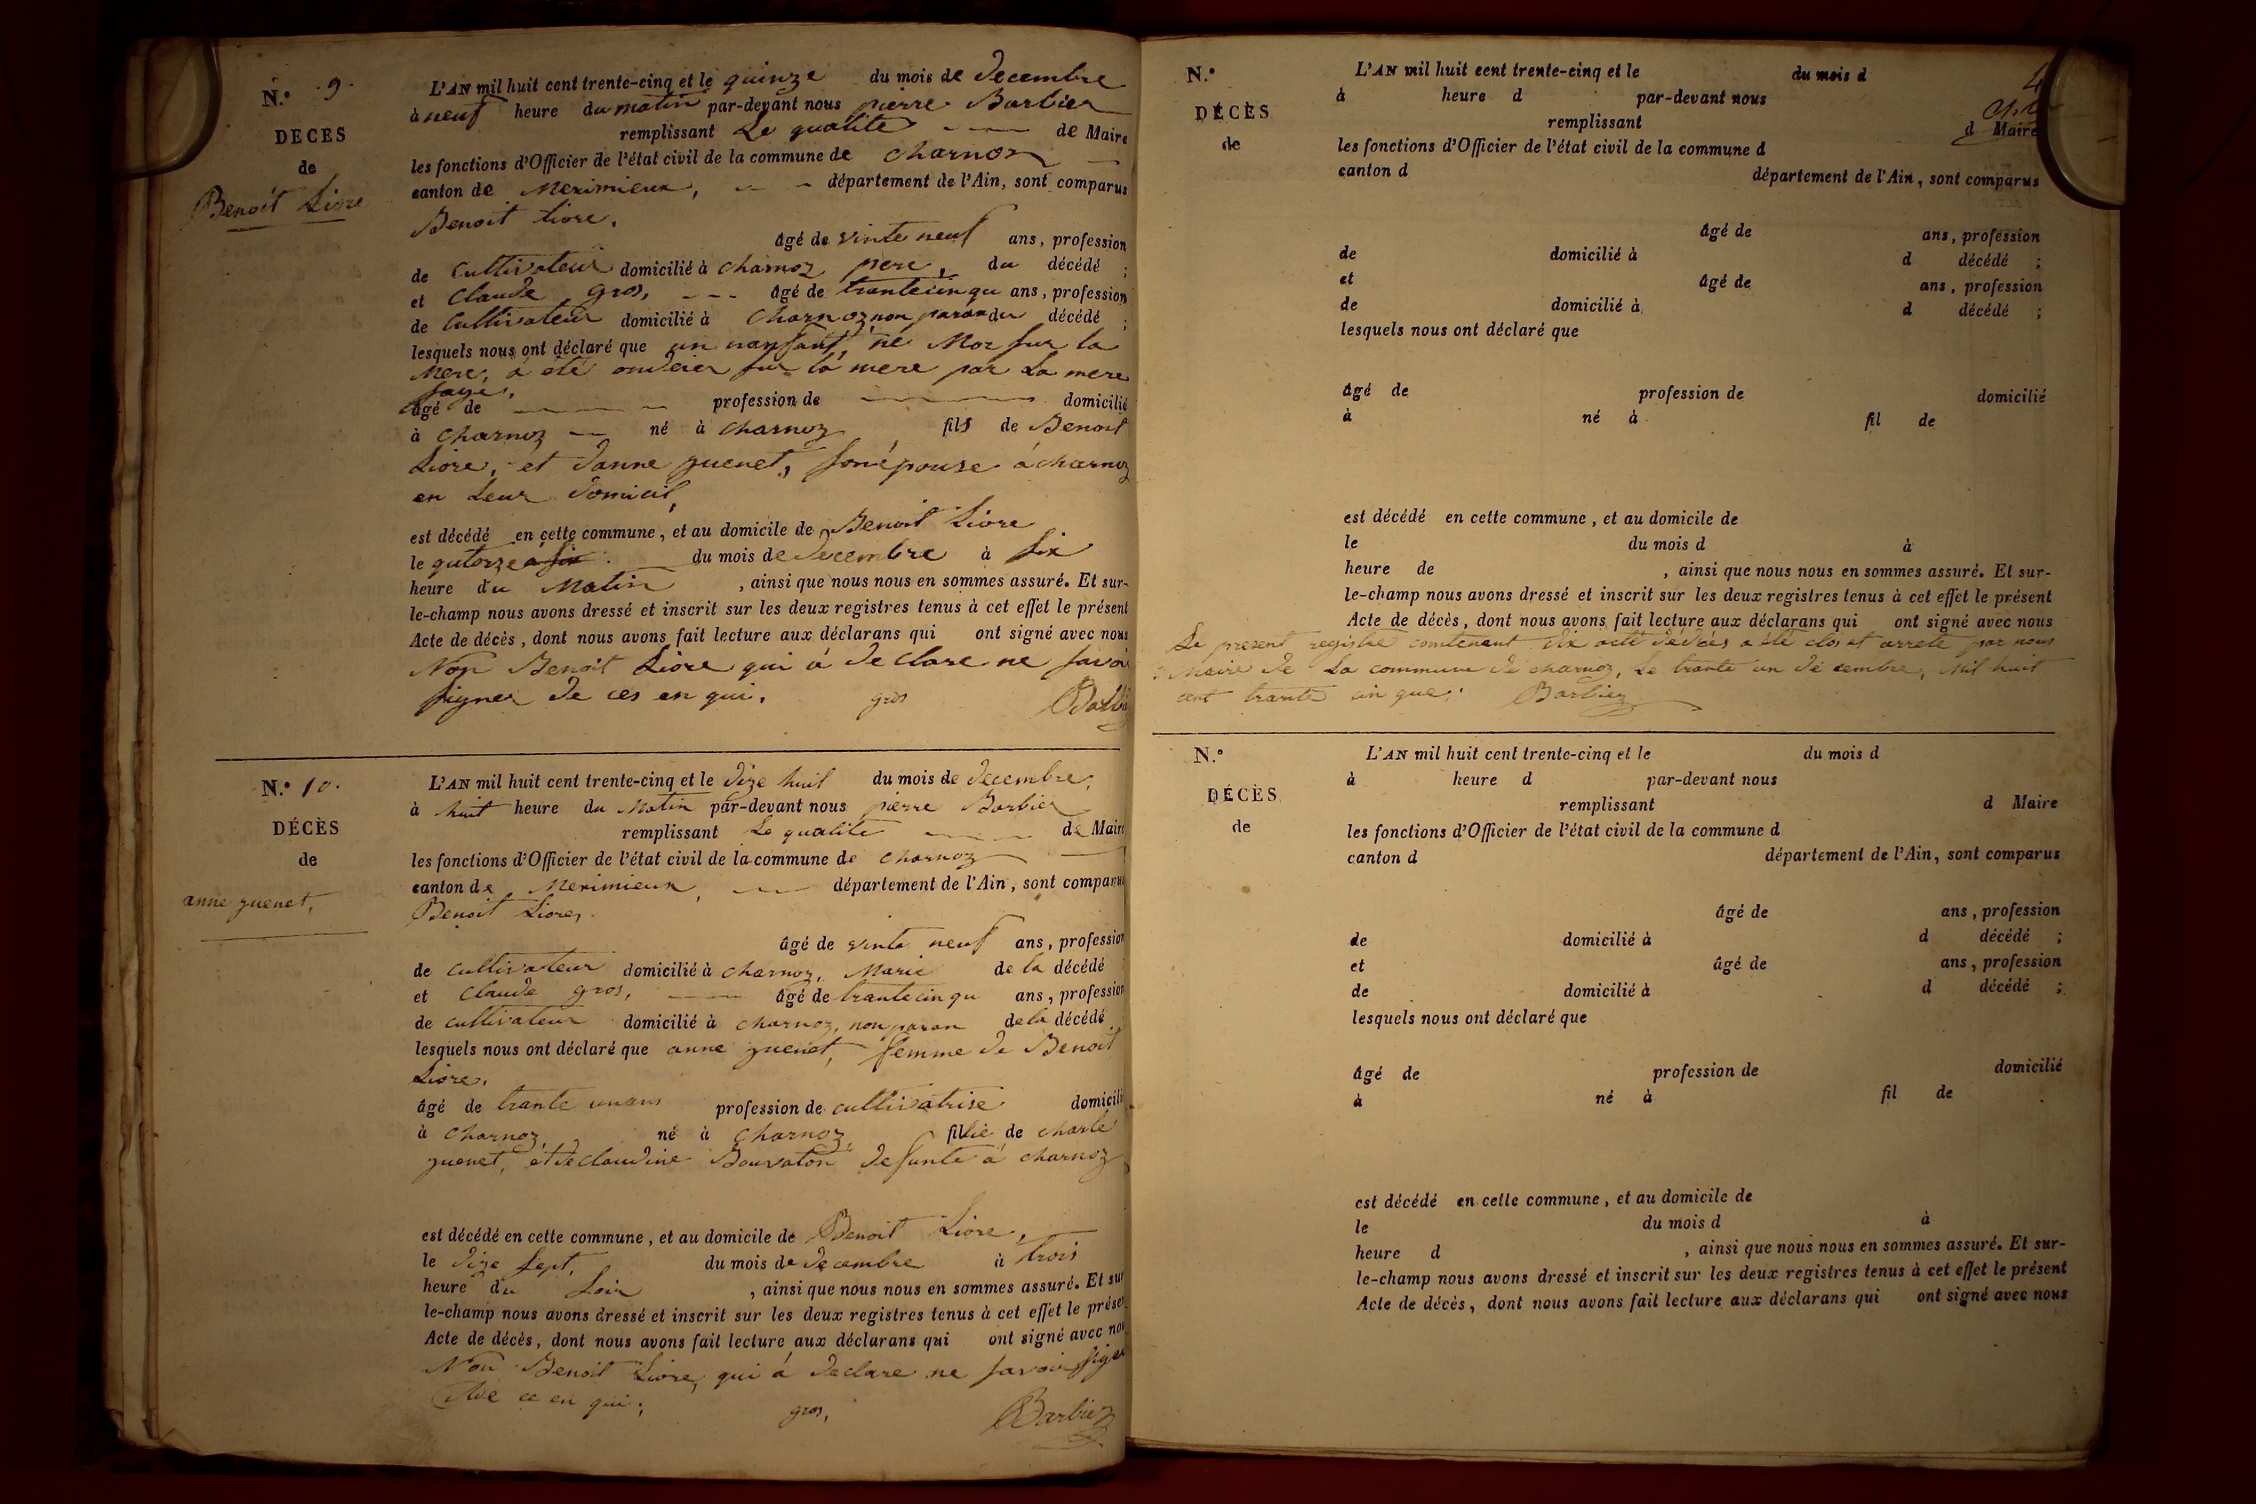 N.º 9.
DECES
de
Benoit Liore
L'AN mil huit cent trente-cinq et le quinze du mois de decembre
à neuf heure du matin par-devant nous pierre Barbier
remplissant Le qualite de Maire
les fonctions d'Officier de l'état civil de la commune de charnoz
canton de Meximieux, département de l'Ain, sont comparus
Benoit Liore,
âgé de vinte neuf ans, profession
de Cultivateur domicilié à charnoz pere, du décédé ;
et Claude gros, âgé de trantecinqu ans, profession
de Cultivateur domicilié à charnoz non paran du décédé ;
lesquels nous ont déclaré que un nanfant, né Mor sur la
Mere, a été par La mere
sage,
âgé de profession de domicilié
à charnoz né à charnoz fils de Benoit
Liore, et d'anne guenet, son épouse á charnoz
en Leur domicil,
est décédé en cette commune, et au domicile de Benoit Liore
le qutorze a six du mois de Decembre à six
heure du Matin, ainsi que nous nous en sommes assuré. Et sur-
le-champ nous avons dressé et inscrit sur les deux registres tenus à cet effet le présent
Acte de décès, dont nous avons fait lecture aux déclarans qui ont signé avec nous
Non Benoit Liore qui á declare ne savoi
signer de ces en qui. gros Barbi
N.º 10.
DÉCÈS
de
anne guenet,
L'AN mil huit cent trente-cinq et le dize huit du mois de decembre,
à huit heure du Matin par-devant nous pierre Barbier
remplissant Le qualite de Maire
les fonctions d'Officier de l'état civil de la commune de charnoz
canton de Meximieux, département de l'Ain, sont comparus
Benoit Liore,
âgé de vinte neuf ans, profession
de cultivateur domicilié à charnoz, Marie de la décédé
et Claude gros, âgé de trantecinqu ans, profession
de cultivateur domicilié à charnoz, non paran de la décédé
lesquels nous ont déclaré que anne guenet, femme de Benoit
Liore,
âgé de trante unans profession de cultivatrise domicili
à charnoz, né à charnoz, fillie de charle
guenet, et de claudine Bouvaton defunte á charnoz
est décédé en cette commune, et au domicile de Benoit Liore,
le dize sept, du mois de decembre à trois
heure du Soir, ainsi que nous nous en sommes assuré. Et sur
le-champ nous avons dressé et inscrit sur les deux registres tenus à cet effet le présen
Acte de décès, dont nous avons fait lecture aux déclarans qui ont signé avec nou
Non Benoit Liore, qui á declare ne savoir signe
de ce en qui, gros, Barbier
N.º
DÉCÈS
de
L'AN mil huit cent trente-cinq et le du mois d
à heure d par-devant nous
remplissant d Maire
les fonctions d'Officier de l'état civil de la commune d
canton d département de l'Ain, sont comparus
âgé de ans, profession
de domicilié à d décédé ;
et âgé de ans, profession
de domicilié à d décédé ;
lesquels nous ont déclaré que
âgé de profession de domicilié
à né à fil de
est décédé en cette commune, et au domicile de
le du mois d à
heure de , ainsi que nous nous en sommes assuré. Et sur-
le-champ nous avons dressé et inscrit sur les deux registres tenus à cet effet le présent
Acte de décès, dont nous avons fait lecture aux déclarans qui ont signé avec nous
Le present registre contenent dix acte dédcés a été clos et arrete par nous
Maire de La commune de charnoz, Le trante un décembre, Mil huit
cent trante cin que, Barbier
N.º
DÉCÈS
de
L'AN mil huit cent trente-cinq et le du mois d
à heure d par-devant nous
remplissant d Maire
les fonctions d'Officier de l'état civil de la commune d
canton d département de l'Ain, sont comparus
âgé de ans, profession
de domicilié à d décédé ;
et âgé de ans, profession
de domicilié à d décédé ;
lesquels nous ont déclaré que
âgé de profession de domicilié
à né à fil de
est décédé en cette commune, et au domicile de
le du mois d à
heure d , ainsi que nous nous en sommes assuré. Et sur-
le-champ nous avons dressé et inscrit sur les deux registres tenus à cet effet le présent
Acte de décès, dont nous avons fait lecture aux déclarans qui ont signé avec nous